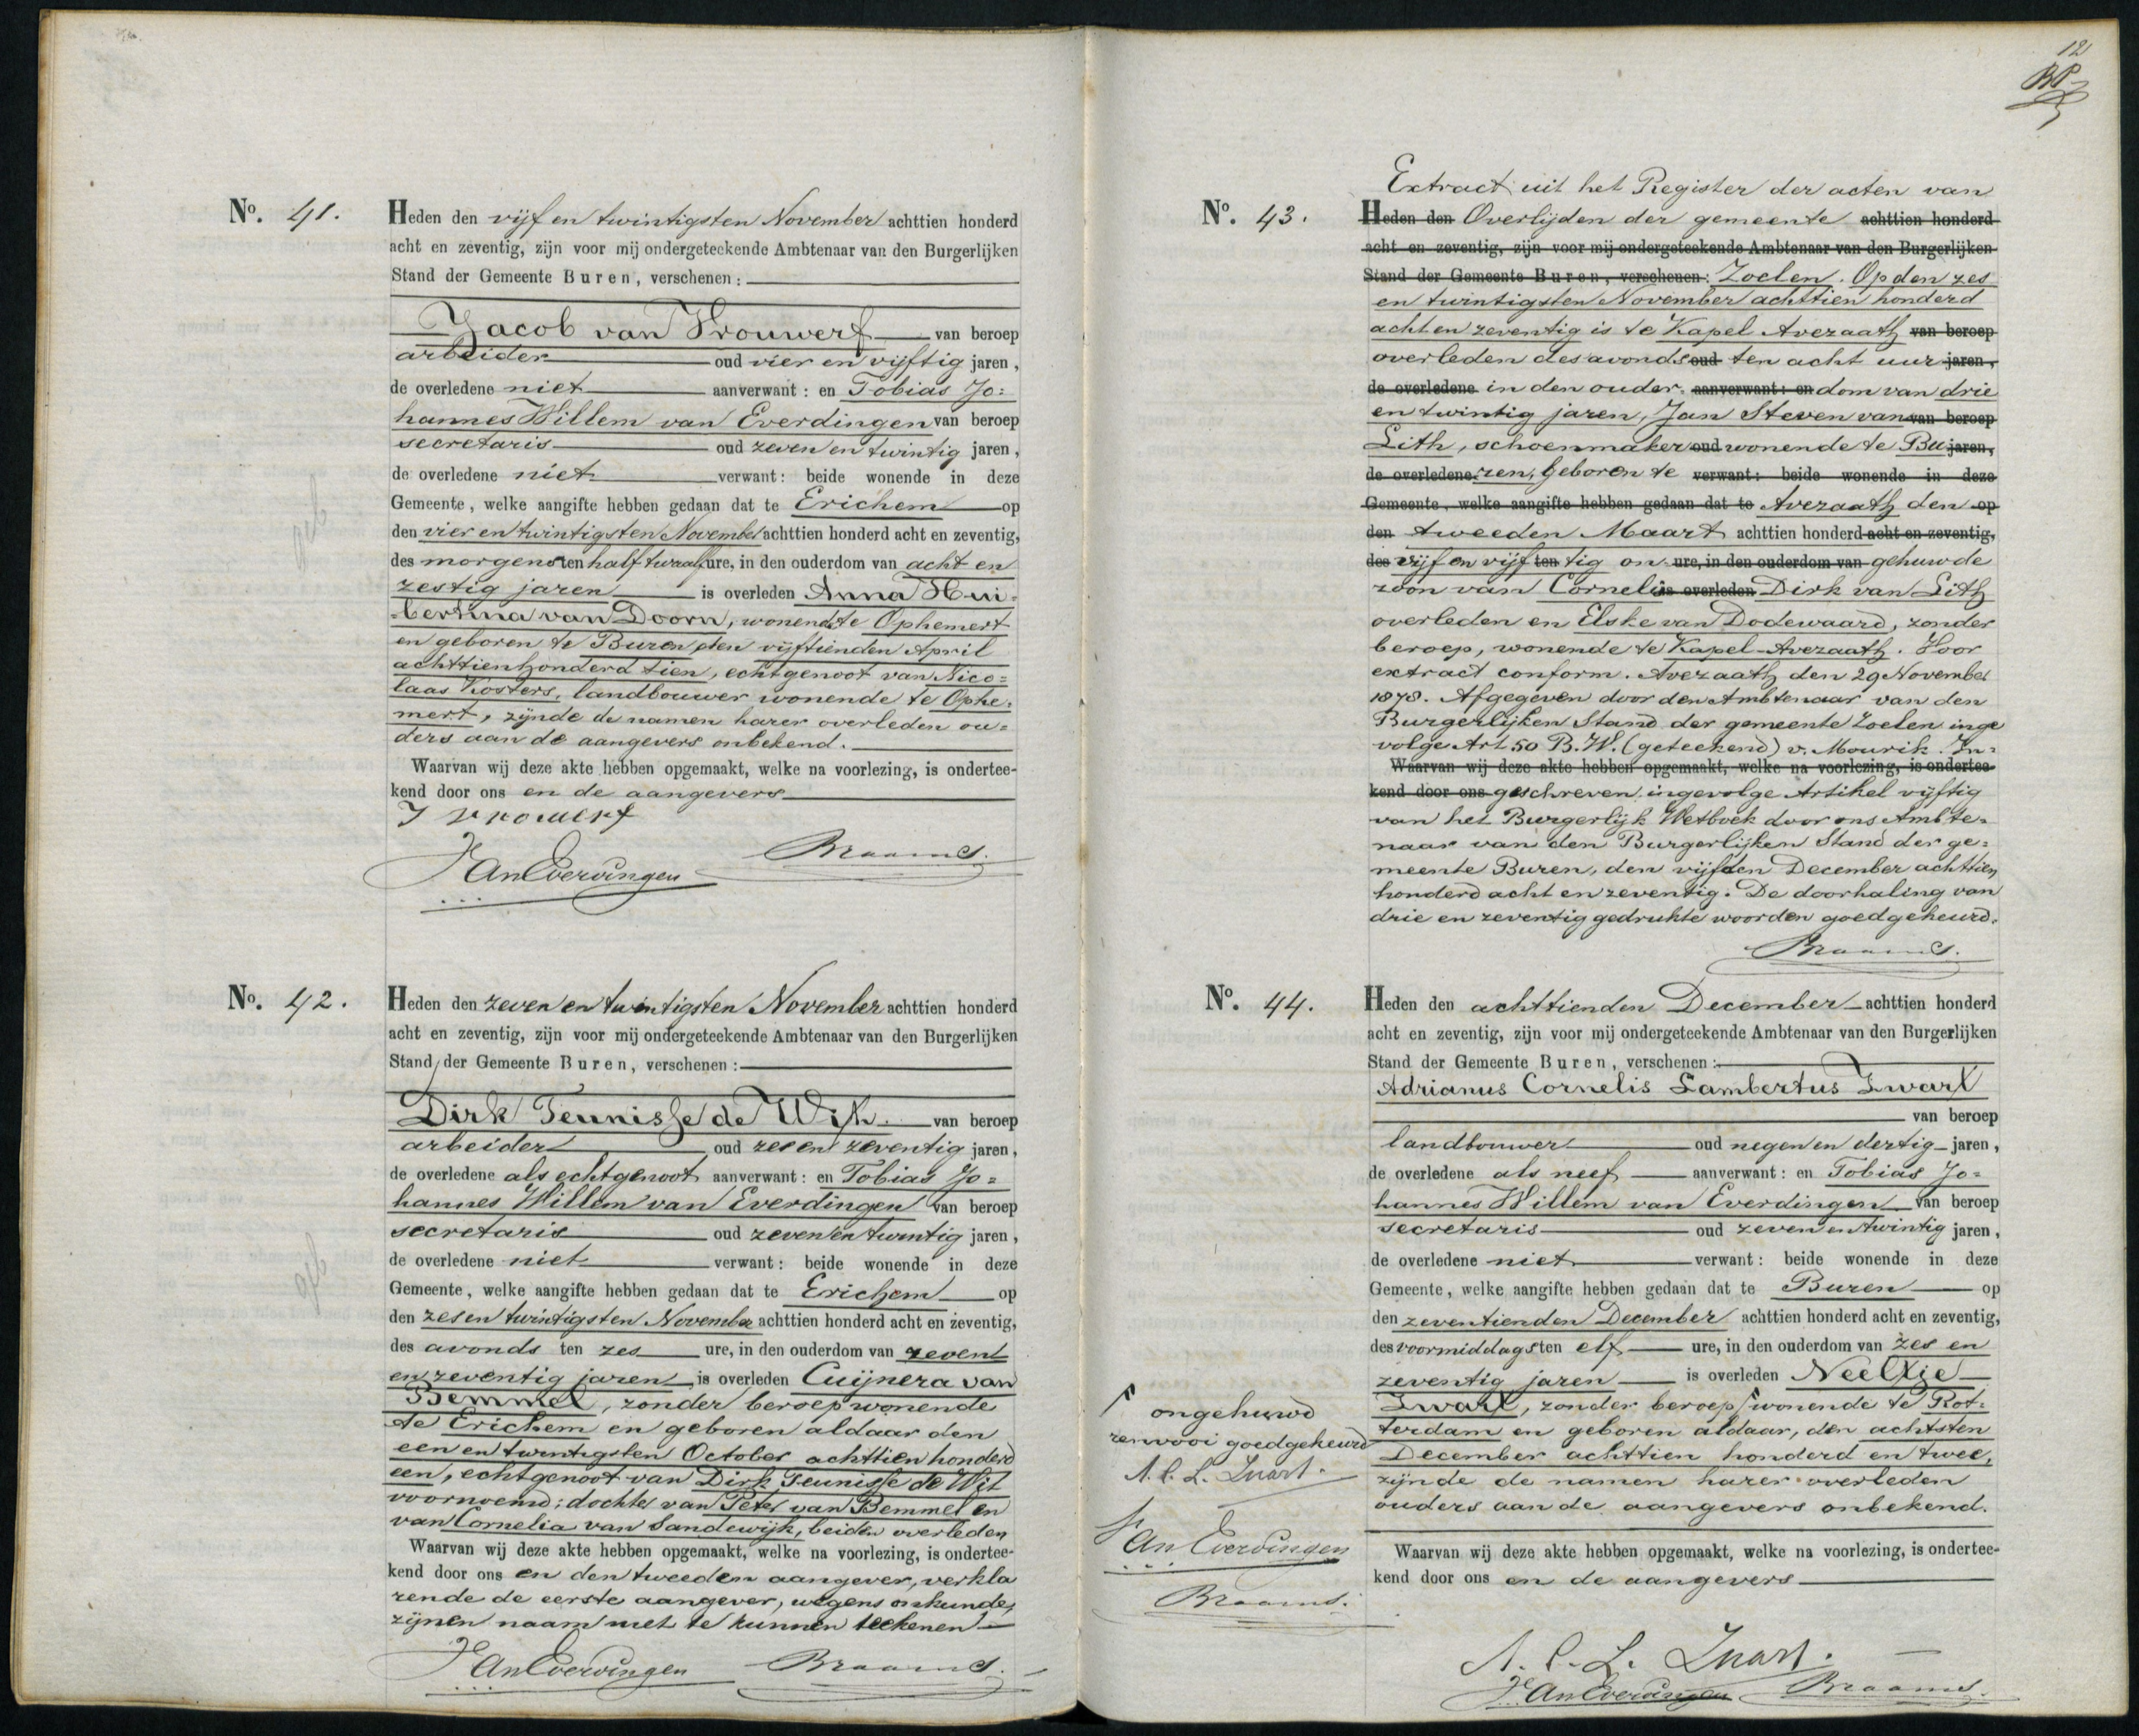 No. 41.
Heden den vijf en twintigsten November achttien honderd
acht en zeventig, zijn voor mij ondergeteekende Ambtenaar van den Burgerlijken
Stand der Gemeente Buren, verschenen:
Jacob van Vrouwerf van beroep
arbeider oud vier en vijftig jaren,
de overledene niet aanverwant: en Tobias Jo=
hannes Willem van Everdingen van beroep
secretaris oud zeven en twintig jaren,
de overledene niet verwant: beide wonende in deze
Gemeente, welke aangifte hebben gedaan dat te Erichem op
den vier en twintigsten November achttien honderd acht en zeventig,
des morgens ten half twaalf ure, in den ouderdom van acht en
zestig jaren is overleden Anna Hui=
bertina van Doorn, wonende te Ophemert
en geboren te Buren den vijftienden April
achttienhonderd tien, echtgenoot van Nico=
laas Kosters, landbouwer wonende te Ophe=
mert, zijnde de namen harer overleden ou=
ders aan de aangevers onbekend.
Waarvan wij deze akte hebben opgemaakt, welke na voorlezing, is ondertee-
kend door ons en de aangevers
J vrouwerf
van Everdingen Braams.
No. 42.
Heden den zeven en twintigsten November achttien honderd
acht en zeventig, zijn voor mij ondergeteekende Ambtenaar van den Burgerlijken
Stand der Gemeente Buren, verschenen:
Dirk Teunisse de Wit van beroep
arbeider oud zes en zeventig jaren,
de overledene als echtgenoot aanverwant: en Tobias Jo=
hannes Willem van Everdingen van beroep
secretaris oud zeven en twintig jaren,
de overledene niet verwant: beide wonende in deze
Gemeente, welke aangifte hebben gedaan dat te Erichem op
den zes en twintigsten November achttien honderd acht en zeventig,
des avonds ten zes ure, in den ouderdom van zeven
en zeventig jaren is overleden Cuijnera van
Bemmel, zonder beroep wonende
te Erichem en geboren aldaar den
een en twintigsten October achttien honderd
een, echtgenoot van Dirk Teunisse de Wit
voornoemd; dochter van Peter van Bemmel en
van Cornelia van Sandewijk, beiden overleden
Waarvan wij deze akte hebben opgemaakt, welke na voorlezing, is ondertee-
kend door ons en den tweeden aangever, verkla
rende de eerste aangever, wegens onkunde,
zijnen naam niet te kunnen teekenen
van Everdingen Braams.
12
No. 43.
Extract uit het Register der acten van
Heden den Overlijden der gemeente achttien honderd
acht en zeventig, zijn voor mij ondergeteekende Ambtenaar van den Burgerlijken
Stand der Gemeente Buren, verschenen: Zoelen. Op den zes
en twintigsten November achttien honderd
acht en zeventig is te Kapel Avezaath van beroep
overleden des avonds oud ten acht uur jaren,
de overledene in den ouder- aanverwant: en dom van drie
en twintig jaren, Jan Steven van van beroep
Lith, schoenmaker oud wonende te Bu jaren,
de overledene ren, geboren te verwant: beide wonende in deze
Gemeente, welke aangifte hebben gedaan dat te Avezaath den op
den tweeden Maart achttien honderd acht en zeventig,
des vijf en vijf ten tig on- ure, in den ouderdom van gehuwde
zoon van Cornelis is overleden Dirk van Lith
overleden en Elske van Dodewaard, zonder
beroep, wonende te Kapel-Avezaath. Voor
extract conform. Avezaath den 29 November
1878. Afgegeven door den Ambtenaar van den
Burgerlijken Stand der gemeente Zoelen inge
volge Art 50 B.W. (geteekend) v. Mourik. In=
Waarvan wij deze akte hebben opgemaakt, welke na voorlezing, is ondertee-
kend door ons geschreven ingevolge Artikel vijftig
van het Burgerlijk Wetboek door ons Ambte=
naar van den Burgerlijken Stand der ge=
meente Buren, den vijfden December achttien
honderd acht en zeventig. De doorhaling van
drie en zeventig gedrukte woorden goedgekeurd.
Braams.
No. 44.
Heden den achttienden December achttien honderd
acht en zeventig, zijn voor mij ondergeteekende Ambtenaar van den Burgerlijken
Stand der Gemeente Buren, verschenen:
Adrianus Cornelis Lambertus Zwart
van beroep
landbouwer oud negen en dertig jaren,
de overledene als neef aanverwant: en Tobias Jo=
hannes Willem van Everdingen van beroep
secretaris oud zeven en twintig jaren,
de overledene niet verwant: beide wonende in deze
Gemeente, welke aangifte hebben gedaan dat te Buren op
den zeventienden December achttien honderd acht en zeventig,
des voormiddags ten elf ure, in den ouderdom van zes en
zeventig jaren is overleden Neeltje
Zwart, zonder beroep wonende te Rot=
terdam en geboren aldaar, den achtsten
December achttien honderd en twee,
zijnde de namen harer overleden
ouders aan de aangevers onbekend.
Waarvan wij deze akte hebben opgemaakt, welke na voorlezing, is ondertee-
kend door ons en de aangevers
A. C. L. Zwart.
van Everdingen Braams.
ongehuwd
renvooi goedgekeurd
A. C. L. Zwart.
van Everdingen
Braams.